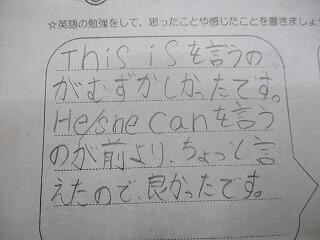 ☆英語の勉強をして、思ったことや感じたことを書きましょ
This isを言うの
がむずかしかったです。
He/she canを言う
のが前より、ちょっと言
えたので、良かったです。